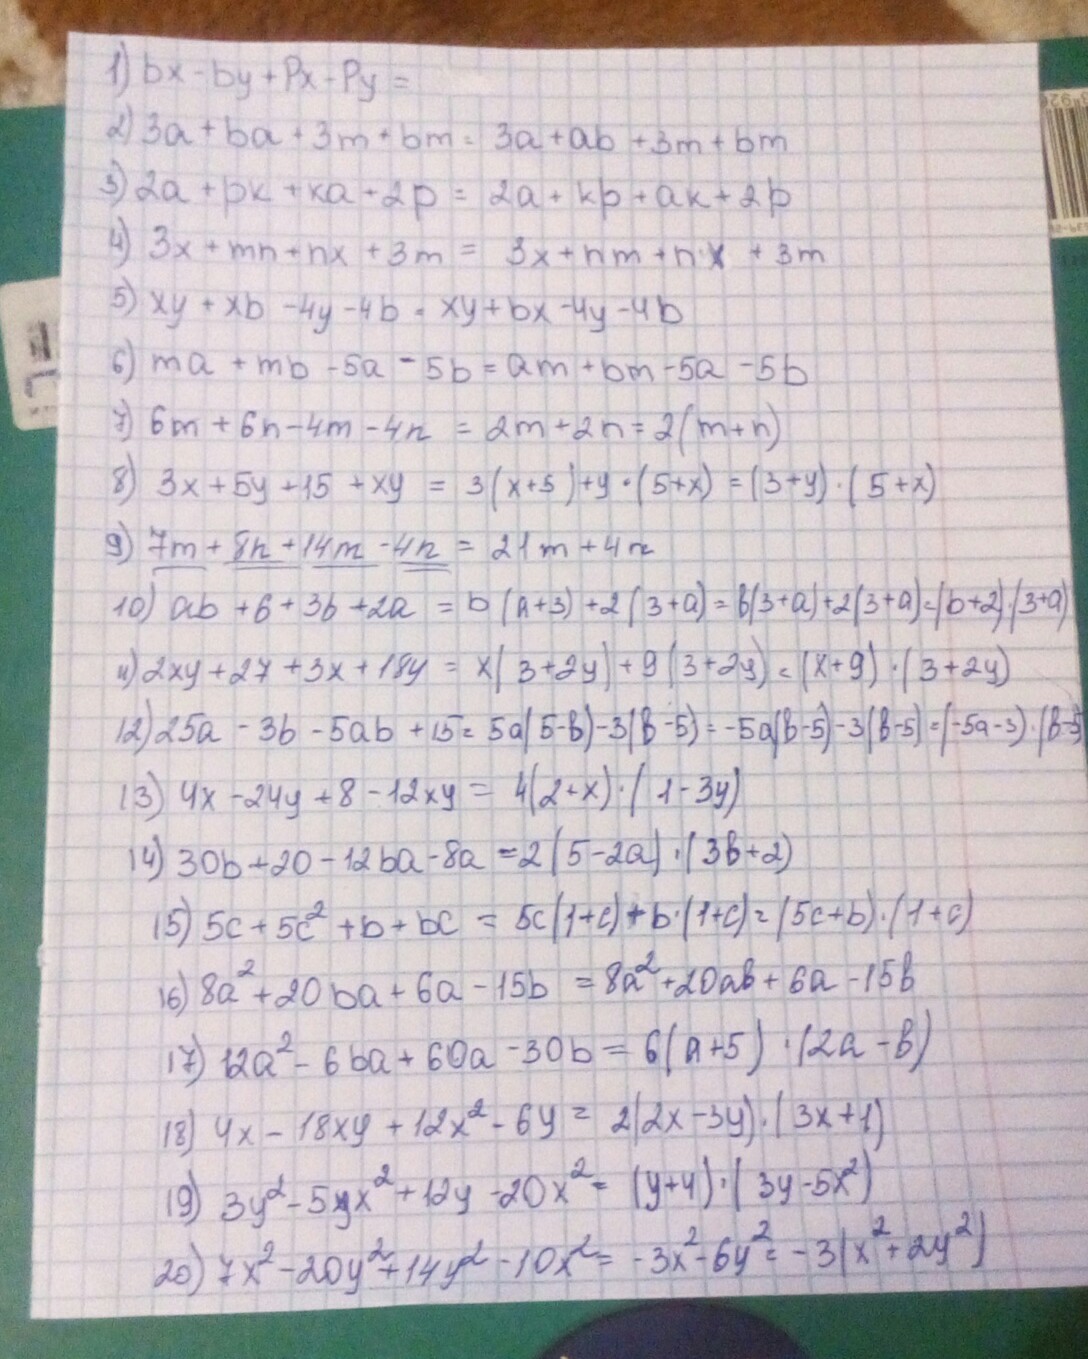 1) bx - by + Px - Py =
2) 3a + ba + 3m + bm = 3a + ab + 3m + bm
3) 2a + pk + ka + 2p = 2a + kp + ak + 2p
4) 3x + mn + nx + 3m = 3x + nm + n·x + 3m
5) xy + xb - 4y - 4b = xy + bx - 4y - 4b
6) ma + mb - 5a - 5b = am + bm - 5a - 5b
7) 6m + 6n - 4m - 4n = 2m + 2n = 2(m+n)
8) 3x + 5y + 15 + xy = 3(x+5) + y·(5+x) = (3+y)·(5+x)
9) 7m + 8n + 14m - 4n = 21m + 4n
10) ab + 6 + 3b + 2a = b(a+3) + 2(3+a) = b(3+a) + 2(3+a) = (b+2)·(3+a)
11) 2xy + 27 + 3x + 18y = x(3+2y) + 9(3+2y) = (x+9)·(3+2y)
12) 25a - 3b - 5ab + 15 = 5a(5-b) - 3(b-5) = -5a(b-5) - 3(b-5) = (-5a-3)·(b-5)
13) 4x - 24y + 8 - 12xy = 4(2+x)·(1-3y)
14) 30b + 20 - 12ba - 8a = 2(5-2a)·(3b+2)
15) 5c + 5c² + b + bc = 5c(1+c) + b·(1+c) = (5c+b)·(1+c)
16) 8a² + 20ba + 6a - 15b = 8a² + 20ab + 6a - 15b
17) 12a² - 6ba + 60a - 30b = 6(a+5)·(2a-b)
18) 4x - 18xy + 12x² - 6y = 2(2x-3y)·(3x+1)
19) 3y² - 5yx² + 12y - 20x² = (y+4)·(3y-5x²)
20) 7x² - 20y² + 14y² - 10x² = -3x² - 6y² = -3(x²+2y²)